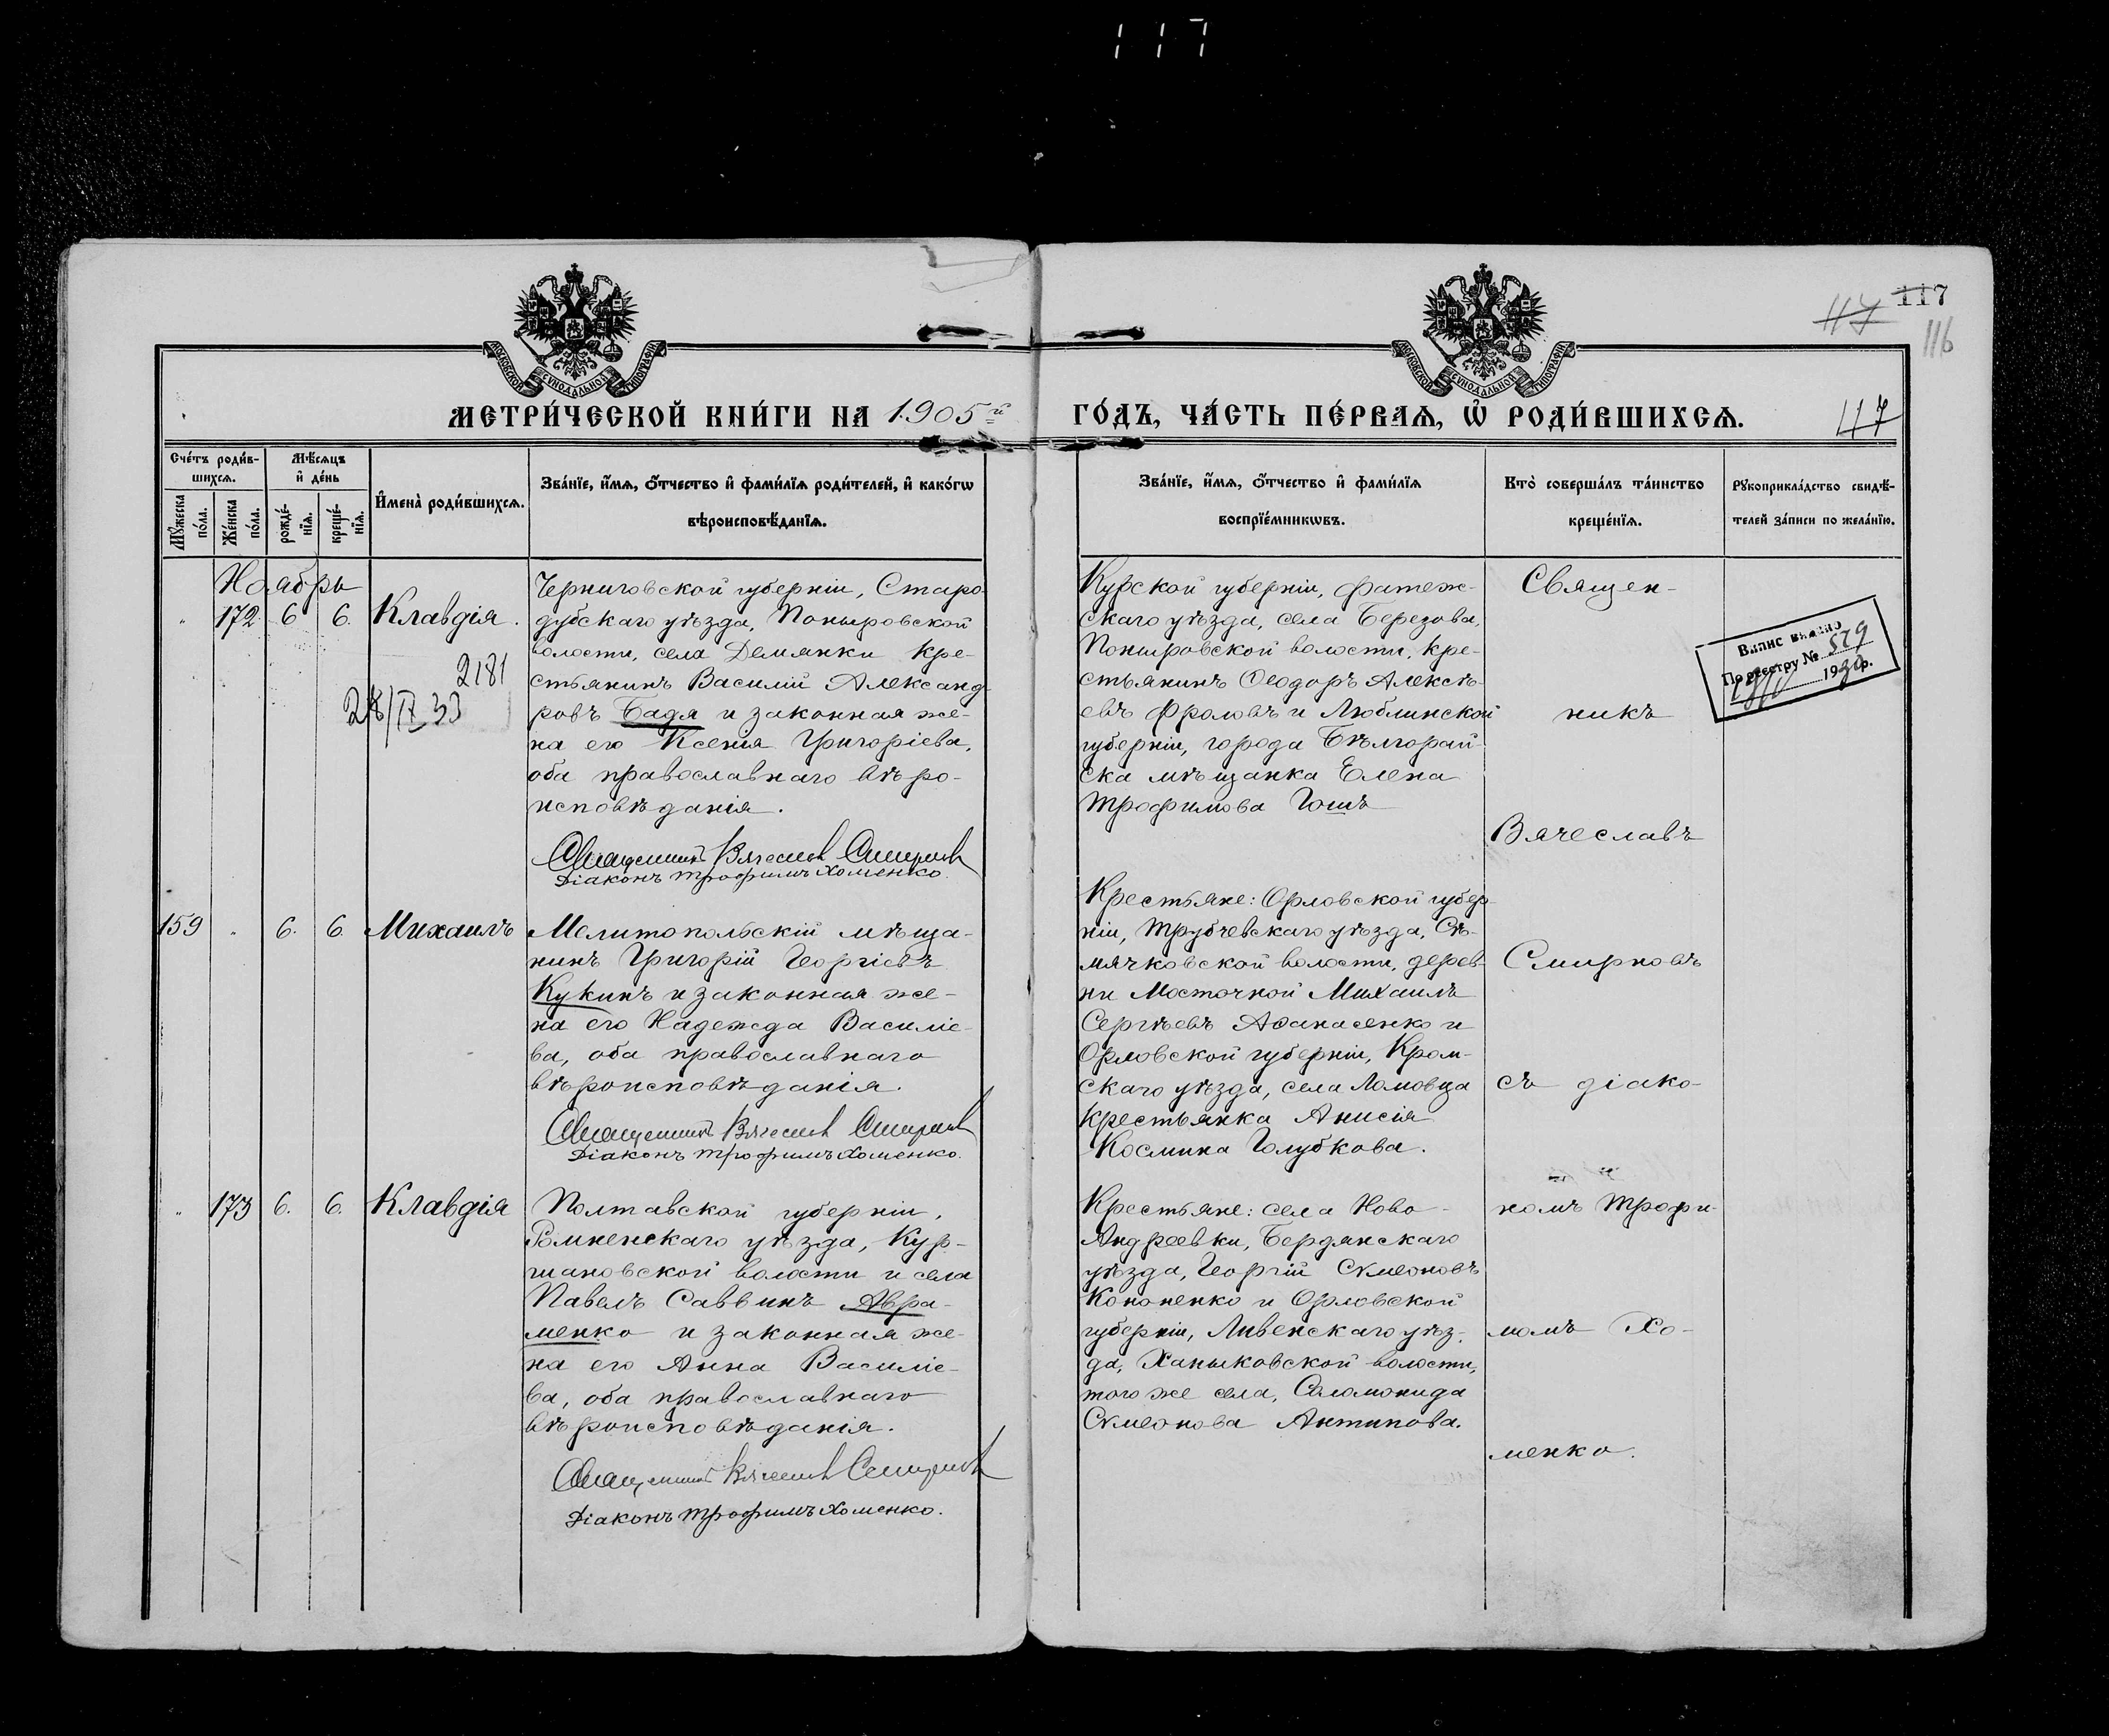 117
117
117
116
МЕТРИ́ЧЕСКОЙ КНИ́ГИ НА 1905й
ГО́ДЪ, ЧА́СТЬ ПЕ́РВАѦ, Ѡ҆ РОДИ́ВШИХСѦ.
117
Сче́тъ роди́в-
шихсѧ.
Мꙋ́жеска
по́ла.
Же́нска
по́ла.
Мѣ́сѧцъ
и҆ де́нь
рожде́-
нїѧ.
креще́-
нїѧ.
И҆мена̀ роди́вшихсѧ.
Зва́нїе, и҆́мѧ, ѻ҆́тчество и҆ фами́лїѧ роди́телей, и҆ како́гѡ
вѣроисповѣ́данїѧ.
Зва́нїе, и҆́мѧ, ѻ҆́тчество и҆ фами́лїѧ
воспрїе́мникѡвъ.
Кто̀ соверша́лъ та́инство
креще́нїѧ.
Рꙋкоприкла́дство свидѣ́-
телей за́писи по жела́нїю.
Ноябрь
„ 172. 6 6. Клавдія.
2181
28/IX 33
Черниговской губерніи, Старо-
дубскаго уѣзда, Поныровской
волости, села Демянки кре-
стьянинъ Василій Александ-
ровъ Бадя и законная же-
на его Ксенія Григоріева,
оба православнаго вѣро-
исповѣданія.
Священникъ Вячеслав Смирнов
Діаконъ Трофимъ Хоменко.
Курской губерніи, Фатеж-
скаго уѣзда, села Березова,
Поныровской волости, кре-
стьянинъ Ѳеодоръ Алексѣ-
евъ Фроловъ и Люблинской
губерніи, города Бѣлгорай-
ска мѣщанка Елена
Трофимова Гошъ
159 „ 6. 6. Михаилъ
Мелитопольскій мѣща-
нинъ Григорій Георгіевъ
Кукинъ и законная же-
на его Надежда Василіе-
ва, оба православнаго
вѣроисповѣданія.
Священникъ Вячеслав Смирнов
Діаконъ Трофимъ Хоменко.
Крестьяне: Орловской губер-
ніи, Трубчевскаго уѣзда, Сѣ-
мячковской волости, дерев-
ни Мосточной Михаилъ
Сергѣевъ Аѳанасенко и
Орловской губерніи, Кром-
скаго уѣзда, села Ломовца
крестьянка Анисія
Космина Голубкова.
„ 173 6. 6. Клавдія
Полтавской губерніи,
Роменскаго уѣзда, Кур-
мановской волости и села
Павелъ Саввинъ Авра-
менко и законная же-
на его Анна Василіе-
ва, оба православнаго
вѣроисповѣданія.
Священникъ Вячеслав Смирнов
Діаконъ Трофимъ Хоменко.
Крестьяне: села Ново-
Андреевки, Бердянскаго
уѣзда, Георгій Сѵмеоновъ
Кононенко и Орловской
губерніи, Ливенскаго уѣз-
да, Ханыковской волости,
того же села, Соломонида
Сѵмеонова Антипова.
Священ-
никъ
Вячеславъ
Смирновъ
съ діако-
номъ Трофи-
момъ Хо-
менко.
Випис видано
По реестру № 529
1930 р.